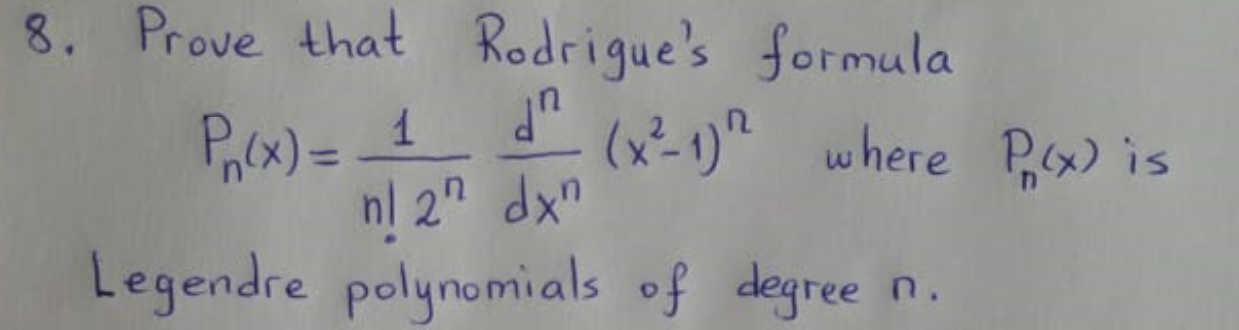 8. Prove that Rodrigue's formula
Pₙ(x) = 1/(n! 2ⁿ) dⁿ/dxⁿ (x²-1)ⁿ where Pₙ(x) is
Legendre polynomials of degree n.